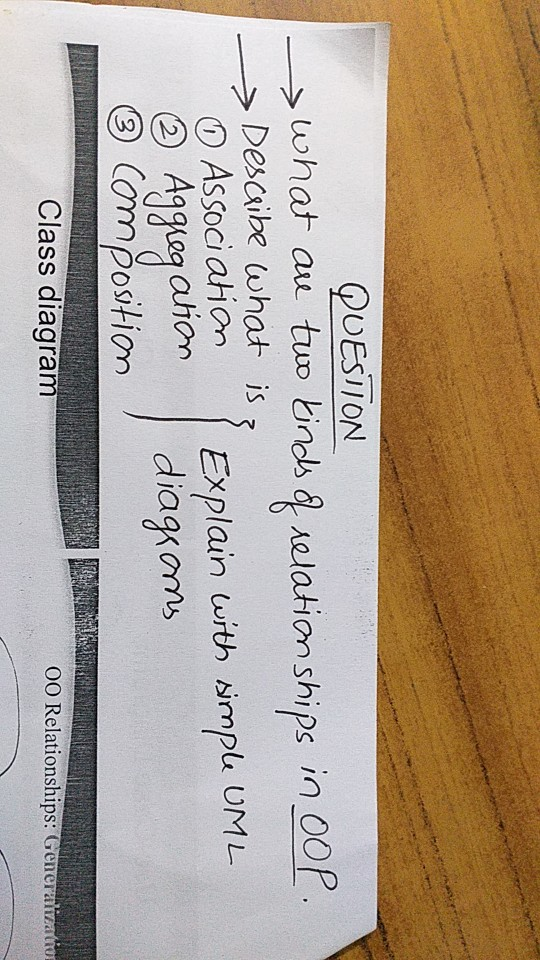 QUESTION
→ what are two kinds of relationships in OOP.
→ Describe what is
① Association
② Aggregation
③ Composition
Explain with simple UML
diagrams
Class diagram
OO Relationships: Generalization